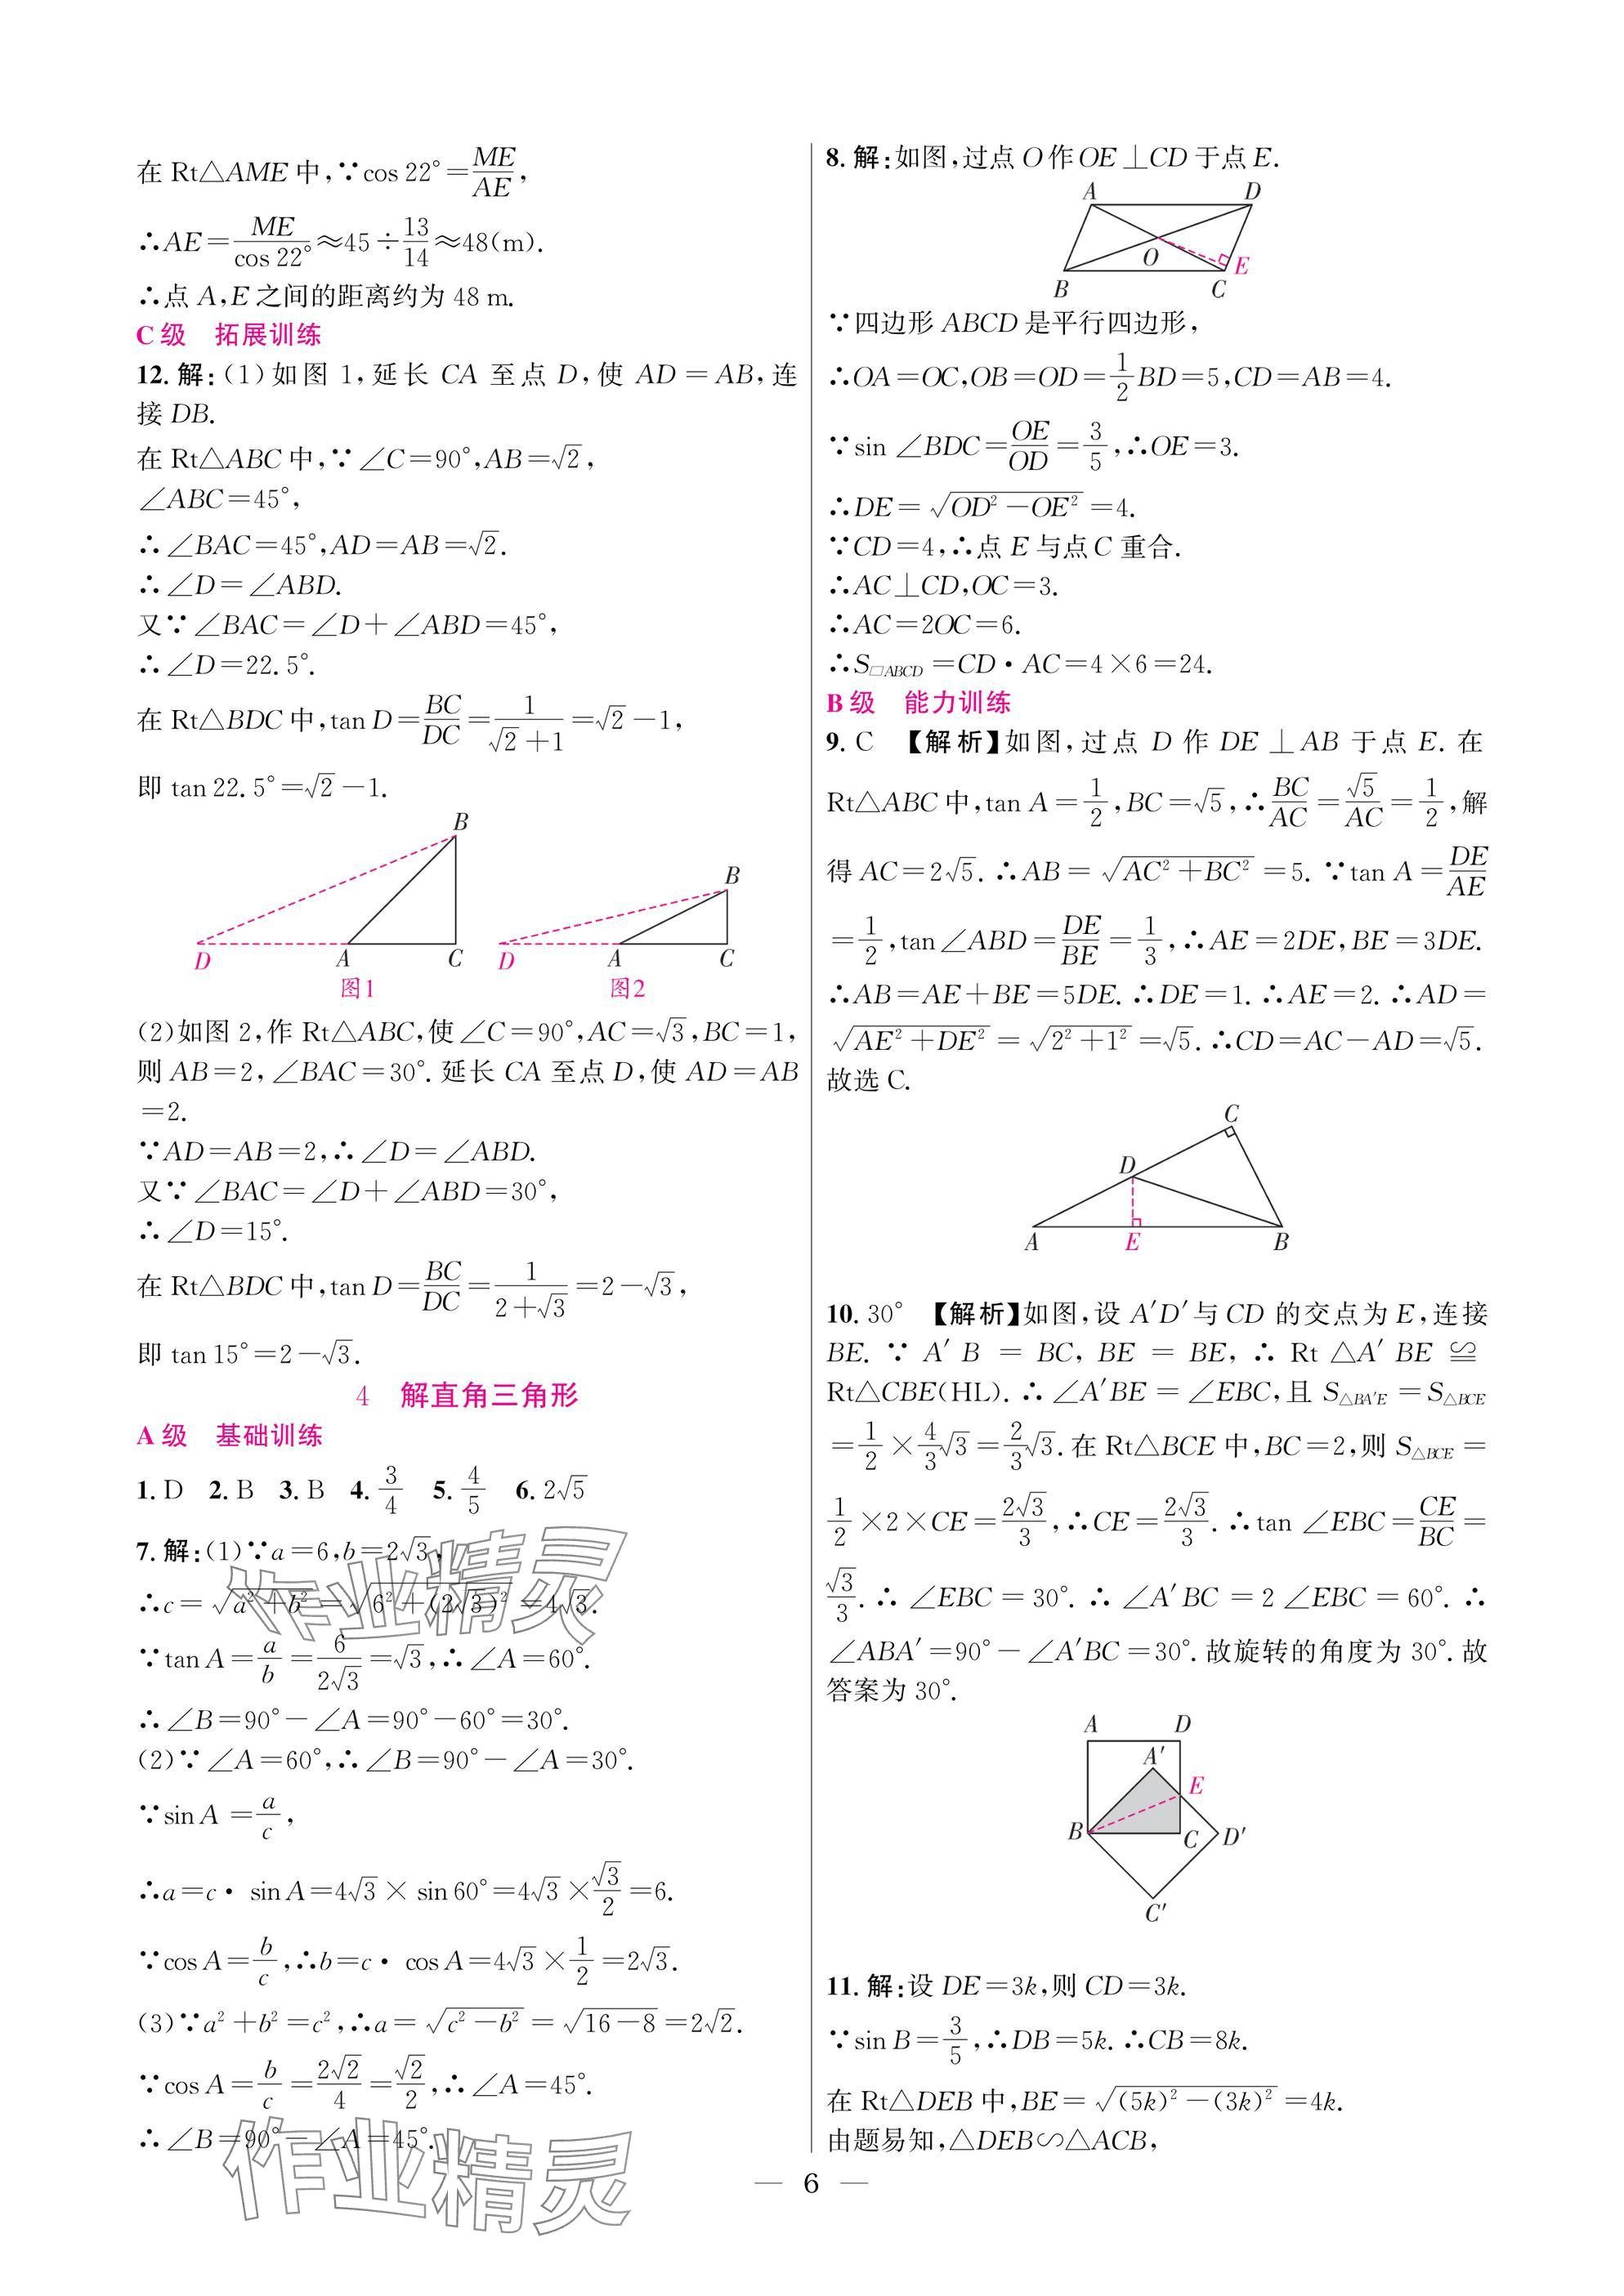 在 Rt△AME 中,∵cos 22°=ME/AE,
∴AE=ME/cos 22°≈45÷13/14≈48(m).
∴点 A,E 之间的距离约为 48 m.
C 级 拓展训练
12.解:(1)如图 1,延长 CA 至点 D,使 AD=AB,连
接 DB.
在 Rt△ABC 中,∵∠C=90°,AB=√2,
∠ABC=45°,
∴∠BAC=45°,AD=AB=√2.
∴∠D=∠ABD.
又∵∠BAC=∠D+∠ABD=45°,
∴∠D=22.5°.
在 Rt△BDC 中,tan D=BC/DC=1/(√2+1)=√2-1,
即 tan 22.5°=√2-1.
B
D A C
图1
B
D A C
图2
(2)如图 2,作 Rt△ABC,使∠C=90°,AC=√3,BC=1,
则 AB=2,∠BAC=30°.延长 CA 至点 D,使 AD=AB
=2.
∵AD=AB=2,∴∠D=∠ABD.
又∵∠BAC=∠D+∠ABD=30°,
∴∠D=15°.
在 Rt△BDC 中,tan D=BC/DC=1/(2+√3)=2-√3,
即 tan 15°=2-√3.
4 解直角三角形
A 级 基础训练
1. D 2. B 3. B 4. 3/4 5. 4/5 6. 2√5
7.解:(1)∵a=6,b=2√3,
∴c=√(a²+b²)=√(6²+(2√3)²)=4√3.
∵tan A=a/b=6/(2√3)=√3,∴∠A=60°.
∴∠B=90°-∠A=90°-60°=30°.
(2)∵∠A=60°,∴∠B=90°-∠A=30°.
∵sin A=a/c,
∴a=c·sin A=4√3×sin 60°=4√3×√3/2=6.
∵cos A=b/c,∴b=c·cos A=4√3×1/2=2√3.
(3)∵a²+b²=c²,∴a=√(c²-b²)=√(16-8)=2√2.
∵cos A=b/c=2√2/4=√2/2,∴∠A=45°.
∴∠B=90°-∠A=45°.
作业精灵
作业精灵
8.解:如图,过点 O 作 OE⊥CD 于点 E.
A D
O E
B C
∵四边形 ABCD 是平行四边形,
∴OA=OC,OB=OD=1/2BD=5,CD=AB=4.
∵sin ∠BDC=OE/OD=3/5,∴OE=3.
∴DE=√(OD²-OE²)=4.
∵CD=4,∴点 E 与点 C 重合.
∴AC⊥CD,OC=3.
∴AC=2OC=6.
∴S▱ABCD=CD·AC=4×6=24.
B 级 能力训练
9. C 【解析】如图,过点 D 作 DE⊥AB 于点 E. 在
Rt△ABC 中,tan A=1/2,BC=√5,∴BC/AC=√5/AC=1/2,解
得 AC=2√5.∴AB=√(AC²+BC²)=5.∵tan A=DE/AE
=1/2,tan∠ABD=DE/BE=1/3,∴AE=2DE,BE=3DE.
∴AB=AE+BE=5DE.∴DE=1.∴AE=2.∴AD=
√(AE²+DE²)=√(2²+1²)=√5.∴CD=AC-AD=√5.
故选 C.
C
D
A E B
10. 30° 【解析】如图,设 A′D′与 CD 的交点为 E,连接
BE. ∵ A′B = BC, BE = BE, ∴ Rt △A′BE ≌
Rt△CBE(HL).∴∠A′BE=∠EBC,且 S△BA′E=S△BCE
=1/2×4/3√3=2/3√3.在 Rt△BCE 中,BC=2,则 S△BCE=
1/2×2×CE=2√3/3,∴CE=2√3/3.∴tan ∠EBC=CE/BC=
√3/3.∴∠EBC=30°.∴∠A′BC=2∠EBC=60°.∴
∠ABA′=90°-∠A′BC=30°.故旋转的角度为 30°.故
答案为 30°.
A D
A′
E
B C D′
C′
11.解:设 DE=3k,则 CD=3k.
∵sin B=3/5,∴DB=5k.∴CB=8k.
在 Rt△DEB 中,BE=√((5k)²-(3k)²)=4k.
由题易知,△DEB∽△ACB,
— 6 —